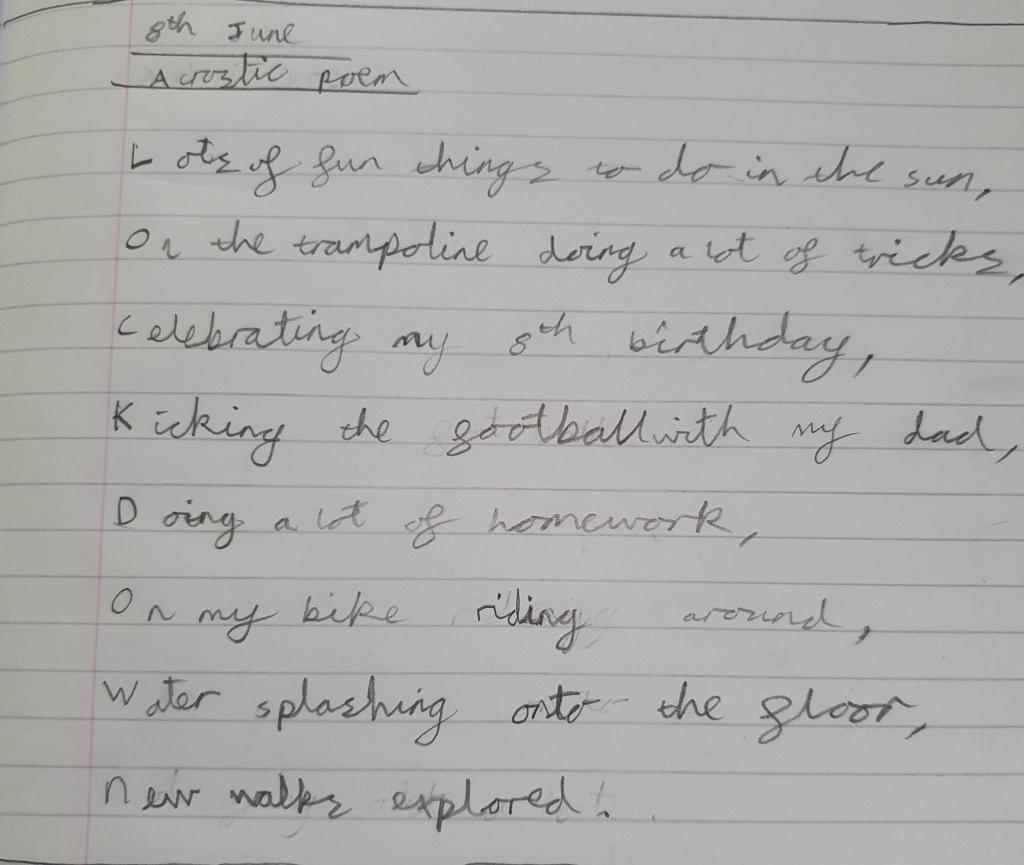 8th June
Acrostic poem
Lots of fun things to do in the sun,
On the trampoline doing a lot of tricks,
Celebrating my 8th birthday,
Kicking the football with my dad,
Doing a lot of homework,
On my bike riding around,
Water splashing onto the floor,
New walks explored!